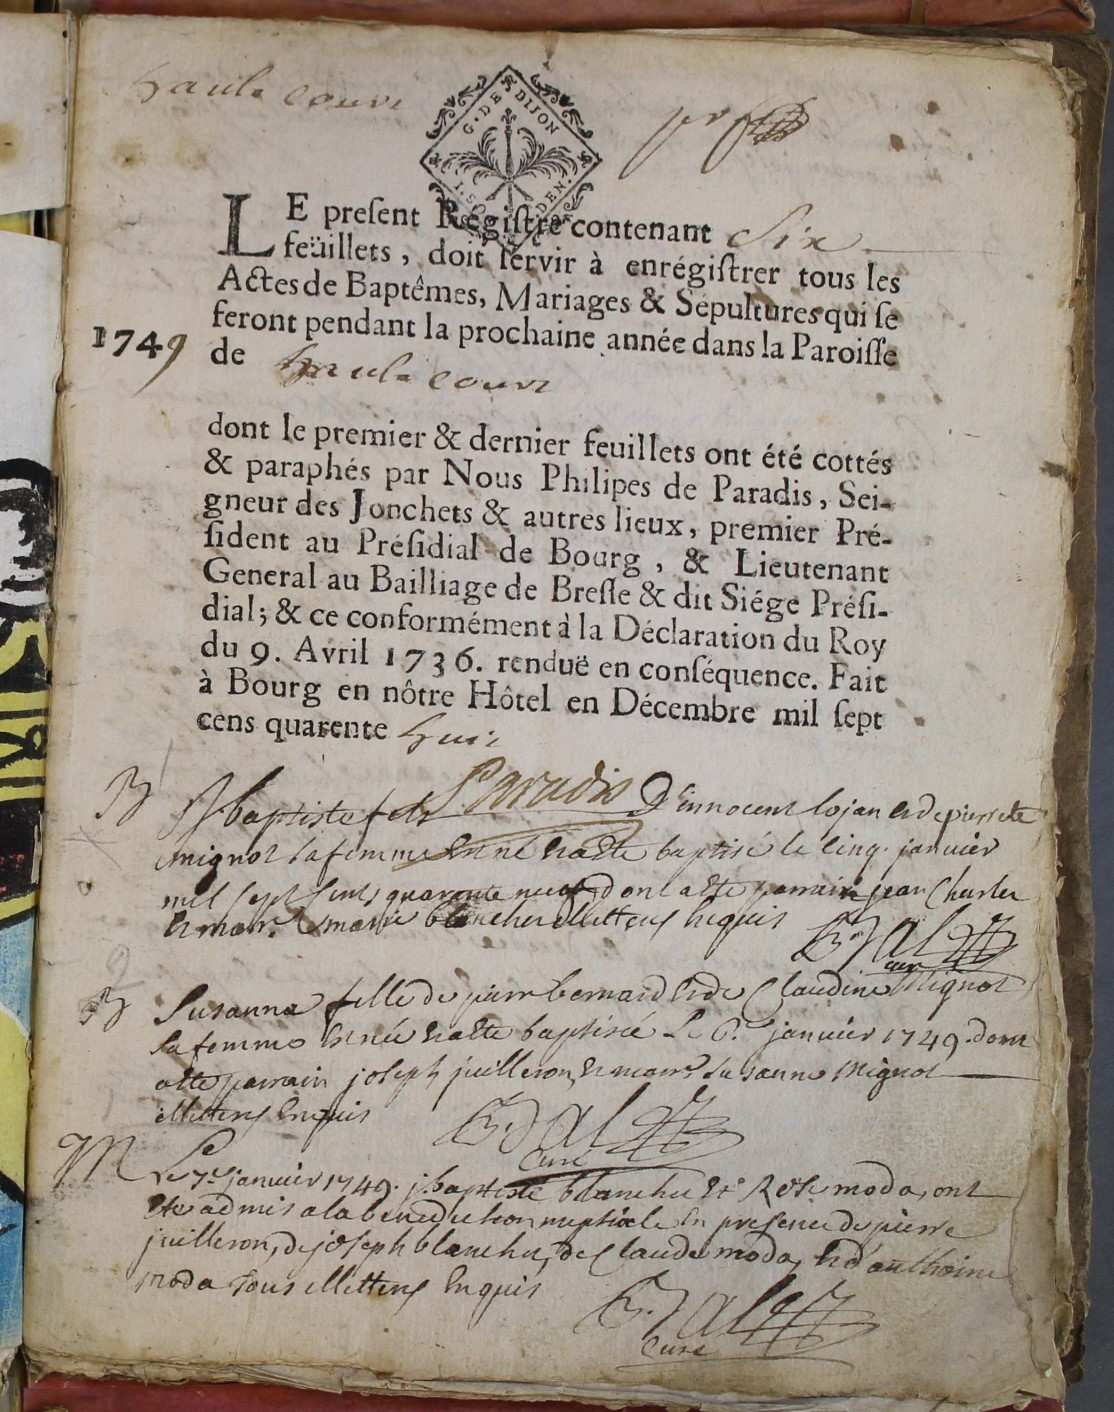 haute cour
G. DE DIJON
I. SOL DEN.
LE preſent Régiſtre contenant Six
feüillets, doit ſervir à enrégiſtrer tous les
Actes de Baptêmes, Mariages & Sépultures qui ſe
feront pendant la prochaine année dans la Paroiſſe
1749
de haute cour
dont le premier & dernier feuillets ont été cottés
& paraphés par Nous Philipes de Paradis, Sei-
gneur des Jonchets & autres lieux, premier Pré-
ſident au Préſidial de Bourg, & Lieutenant
General au Bailliage de Breſſe & dit Siége Préſi-
dial; & ce conformément à la Déclaration du Roy
du 9. Avril 1736. renduë en conſéquence. Fait
à Bourg en nôtre Hôtel en Décembre mil ſept
cens quarente huit
Paradis
B J baptiste fels D'innocent lojan et de pierrette
mignot sa femme est né et a ete baptisé le cinq. janvier
mil sept cents quarente neuf dont a ete parrain jean Charles
et marr. marie blancher illitters enquis
cure
B Susanne fille de pierre bernard et de Claudine Mignot
sa femme est née et a ete baptisée Le 6. janvier 1749. dont
a ete parrain joseph juilleron, et marr. Susanne Mignot
illitters Enquis
Curé
M Le 7. janvier 1749. j. baptiste blanchet et Rose moda, ont
ete admis a la benediction nuptiale En presence de pierre
juilleron, de joseph blanchet, de Claude moda, et d'anthoine
moda tous illitters Enquis
Curé